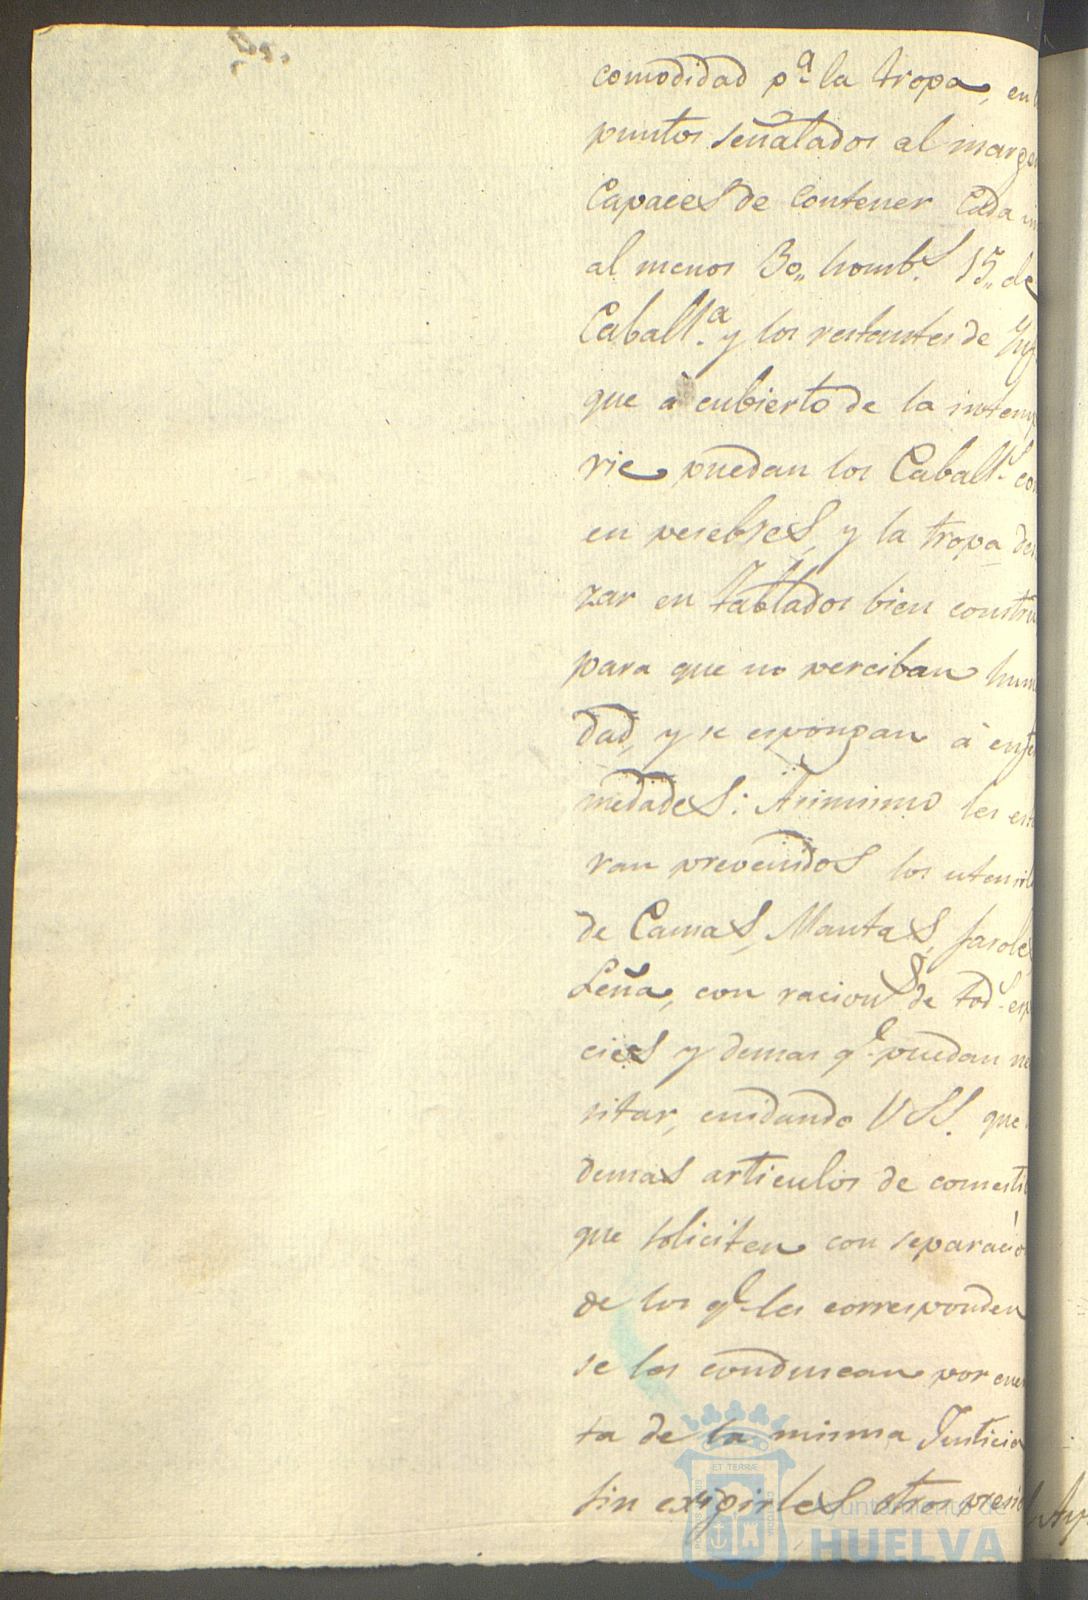 comodidad p.ª la tropa, en
puntos señalados al margen
Capaces de Contener Cada
al menos 30,, homb.s 15,, de
Caball.ª y los restantes de Ynf
que à cubierto de la intem
rie puedan los Caball.s co
en pesebres, y la tropa des
zar en tablados bien constru
para que no perciban hum
dad, y se espongan à enfe
medades: Asimismo les esta
ran prevenidos los utensil
de Camas, Mantas, faroles
Leña, con racion.s de tod.s esp
cies y demas q.e puedan ne
sitar, cuidando VSS. que
demas articulos de comesti
que soliciten con separació
de los q.e les corresponden
se les conduscan por cuen
ta de la misma Justicia
sin exigirles otros preci
Ayuntamiento de
HUELVA